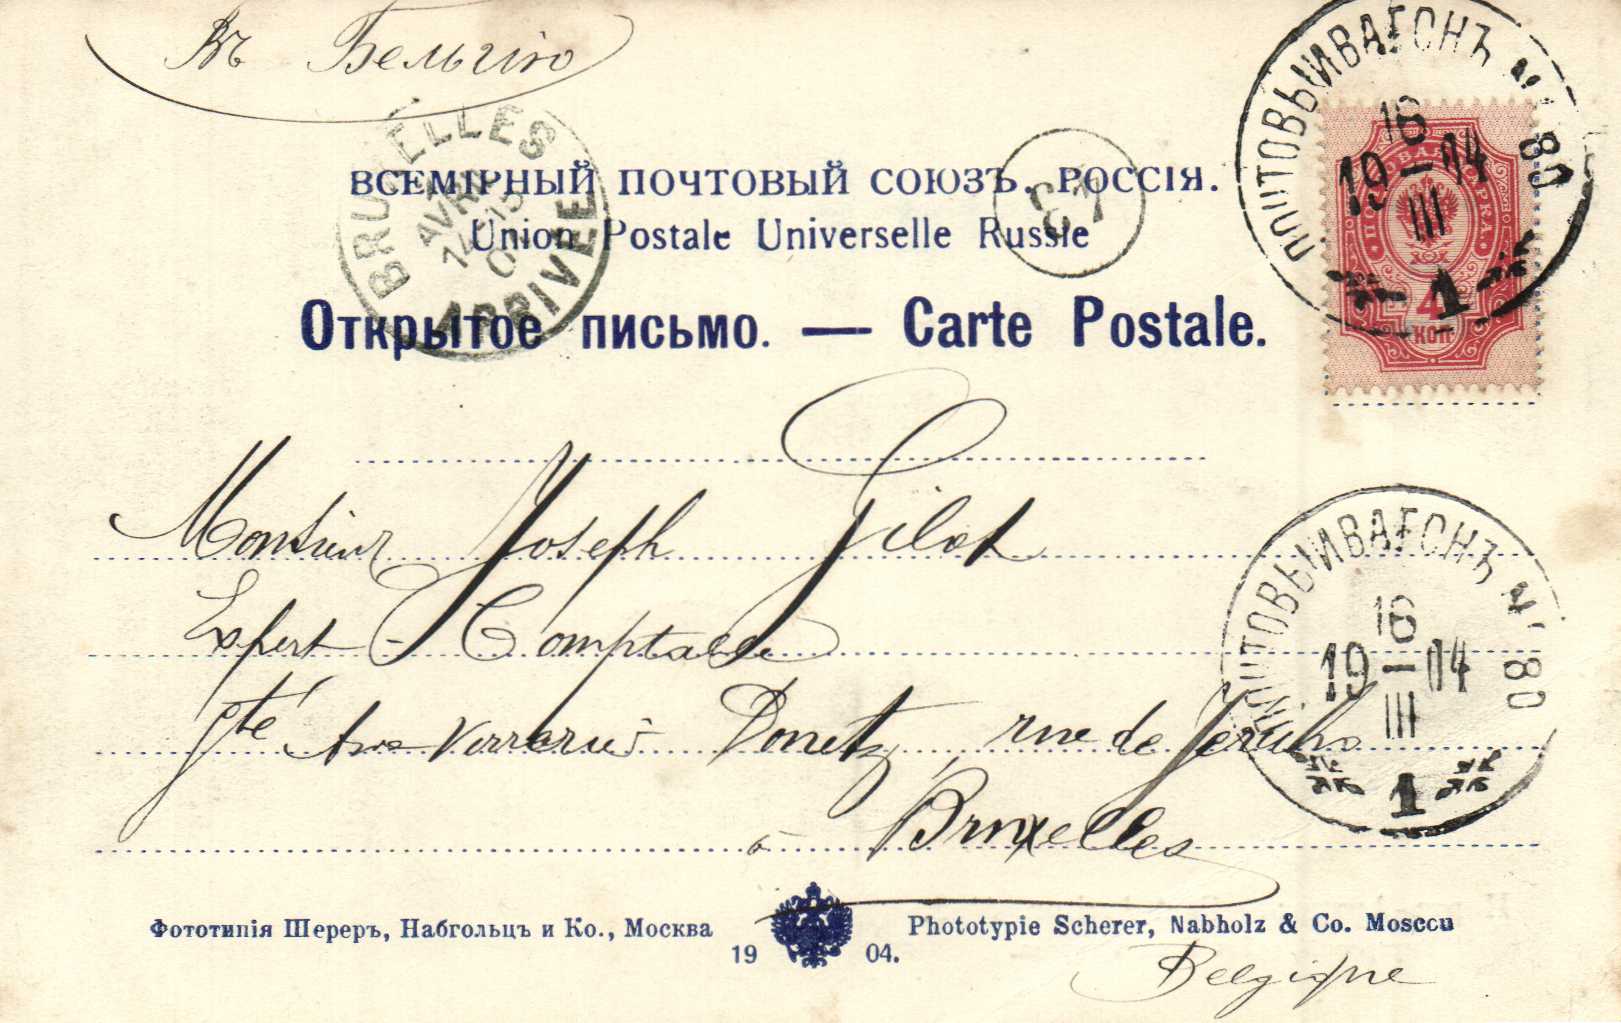 Въ Бельгію
ПОЧТОВЫЙ ВАГОНЪ № 80
16
19 — 04
III
1
ПОЧТОВАЯ МАРКА
4
КОП
BRUXELLES
AVRIL
ARRIVEE
ВСЕМІРНЫЙ ПОЧТОВЫЙ СОЮЗЪ. РОССІЯ.
Union Postale Universelle Russie
Открытое письмо. — Carte Postale.
Monsieur Joseph Gilot
Expert-Comptable
Sté Ame Verreries Donetz, rue de Jericho
à Bruxelles
ПОЧТОВЫЙ ВАГОНЪ № 80
16
19 — 04
III
1
Фототипія Шереръ, Набгольцъ и Ко., Москва
1904.
Phototypie Scherer, Nabholz & Co. Moscou
Belgique